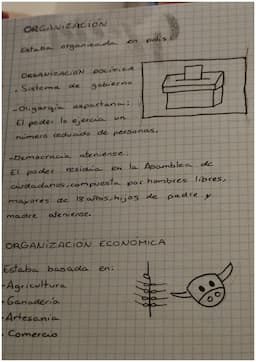 ORGANIZACIÓN
Estaba organizada en polis:
ORGANIZACIÓN POLÍTICA
- Sistema de gobierno
- Oligargía espartana:
El poder lo ejercía un
número reducido de personas.
- Democracia ateniense.
El poder residía en la Asamblea de
ciudadanos, compuesta por hombres libres,
mayores de 18 años, hijos de padre y
madre ateniense.
ORGANIZACIÓN ECONÓMICA
Estaba basada en:
- Agricultura
- Ganadería
- Artesanía
- Comercio